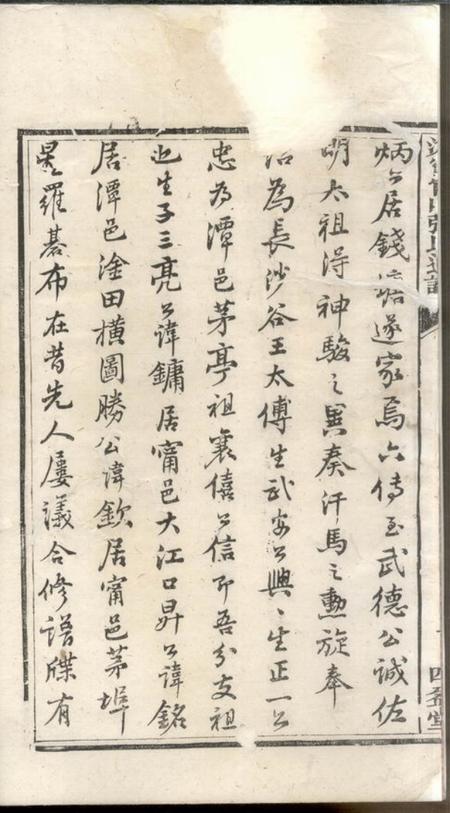 炳公居錢塘遂家焉六傳至武德公誠佐
明太祖得神駿之異奏汗馬之勳旋奉
為長沙谷王太傅生武安公興〻生正一公
忠為潭邑茅亭祖襄僖公信即吾分支祖
也生子三亮公諱鏞居甯邑大江口昇公諱銘
居潭邑淦田橫圖勝公諱欽居甯邑茅埠
星羅碁布在昔先人屢議合修譜牒有
四益堂